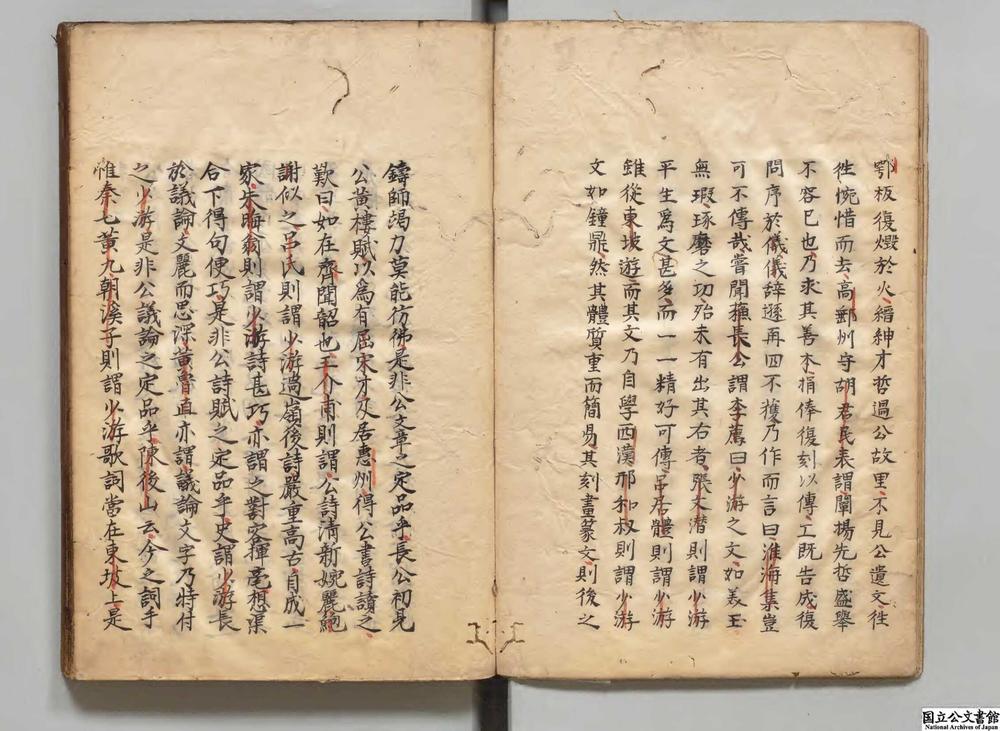 鄂板復燬於火縉紳才哲過公故里不見公遺文徃
徃惋惜而去高郵州守胡君民表謂闡揚先哲盛舉
不容已也乃求其善本捐俸復刻以傳工既告成復
問序於儀儀辭遜再四不獲乃作而言曰淮海集豈
可不傳哉嘗聞蘓長公謂李廌曰少游之文如美玉
無瑕琢磨之功殆未有出其右者張文潜則謂少游
平生爲文甚多而一一精好可傳吕居體則謂少游
雖從東坡遊而其文乃自學西漢邢和叔則謂少游
文如鐘鼎然其體質重而簡易其刻畫篆文則後之
鑄師竭力莫能彷佛是非公文章之定品乎長公初見
公黄樓賦以爲有屈宋才及居惠州得公書詩讀之
歎曰如在齊聞韶也王介甫則謂公詩清新婉麗鮑
謝似之吕氏則謂少游過嶺後詩嚴重高古自成一
家朱晦翁則謂少游詩甚巧亦謂之對客揮毫想渠
合下得句便巧是非公詩賦之定品乎史謂少游長
於議論文麗而思深黄魯直亦謂議論文字乃特付
之少游是非公議論之定品乎陳後山云今之詞手
惟秦七黄九朝溪子則謂少游歌詞當在東坡上是
国立公文書館
National Archives of Japan